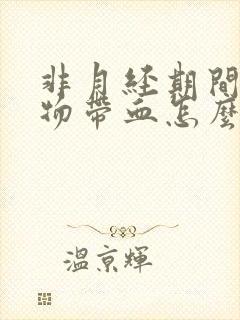 非月經期間
物帶血怎麼
溫京輝